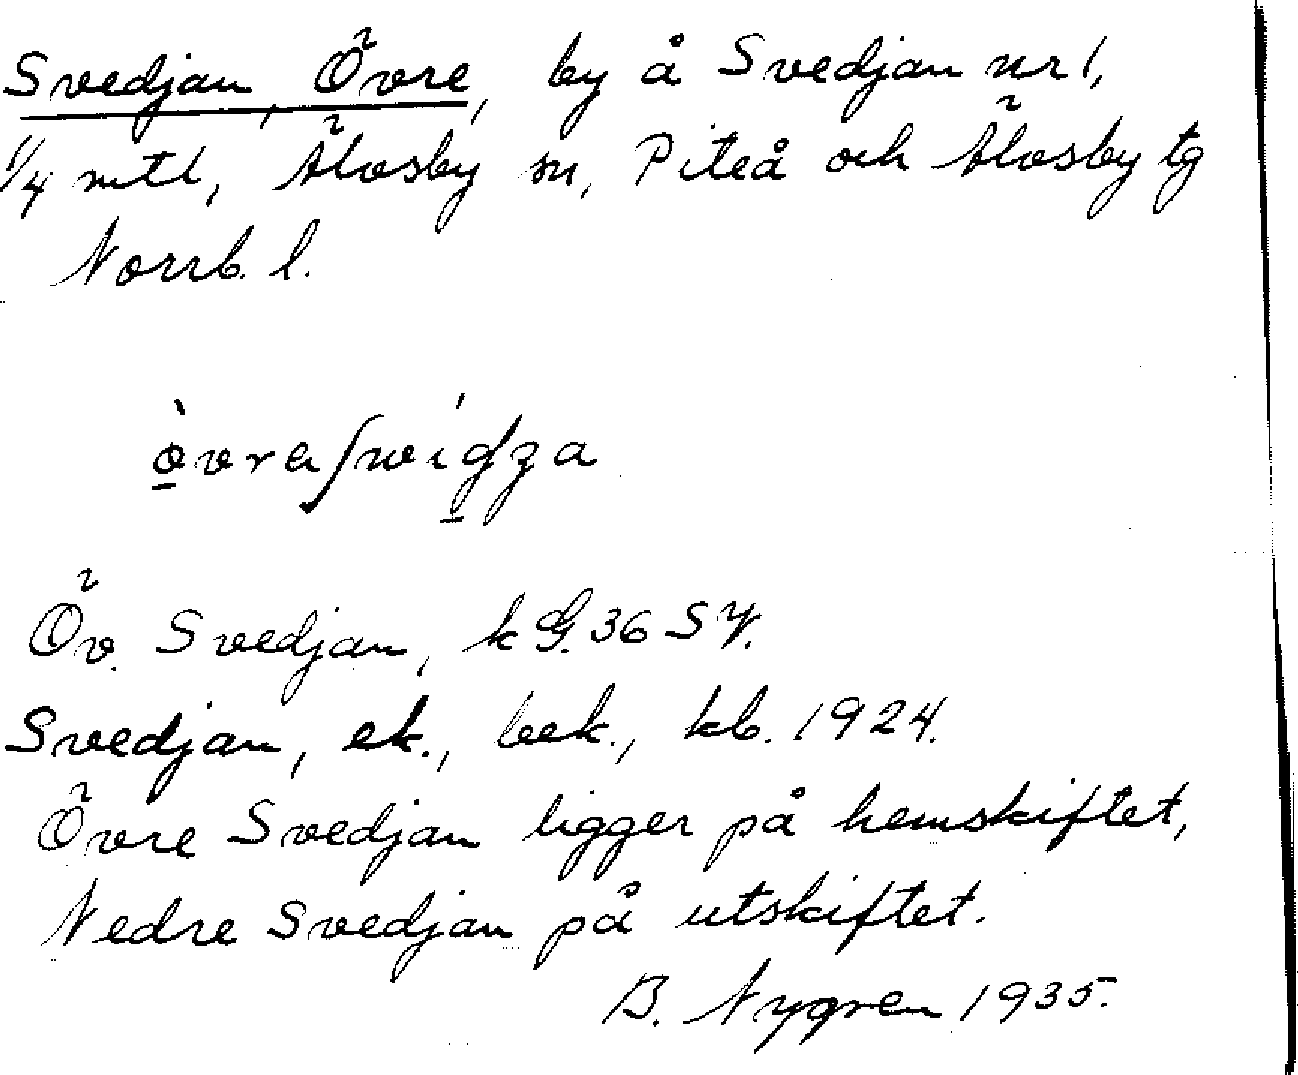 Svedjan, Övre, by å Svedjan nr 1,
1/4 mtl, Älvsby sn, Piteå och Älvsby tg
Norrb. l.
Öv. Svedjan, k G. 36 SV.
Svedjan, ek., bek., kb. 1924.
Övre Svedjan ligger på hemskiftet,
Nedre Svedjan på utskiftet.
B. Nygren 1935.